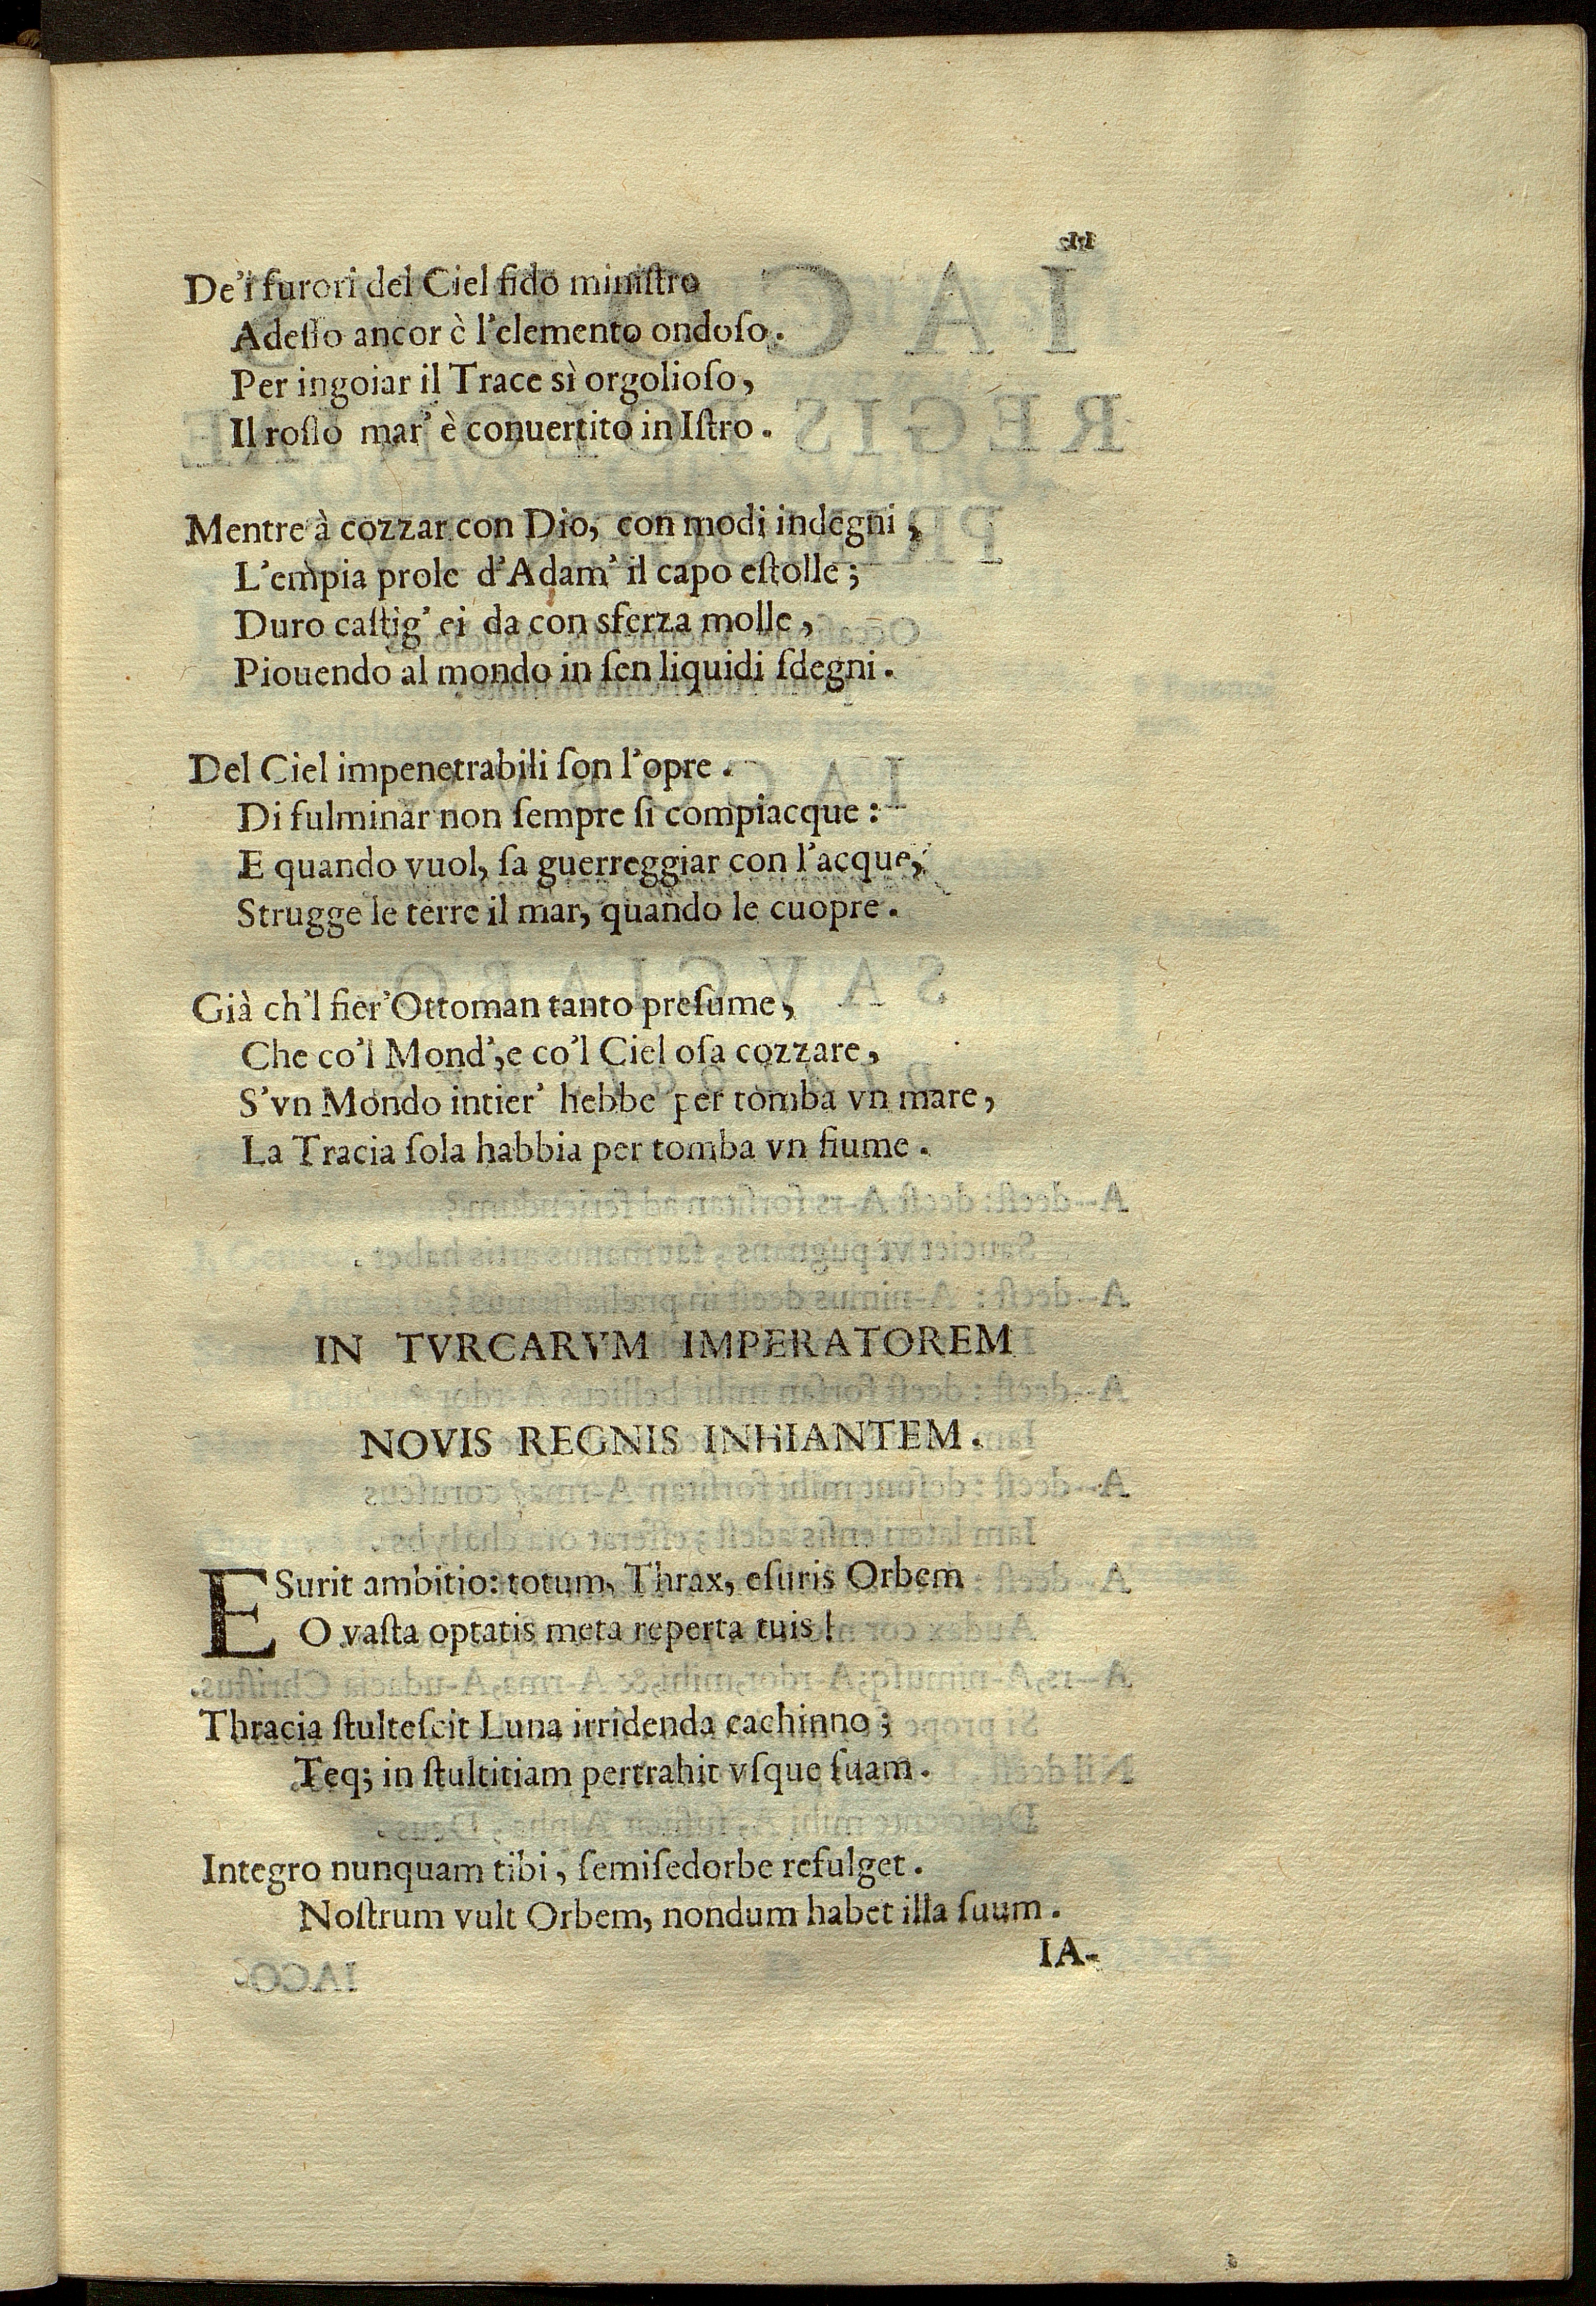 De'i furori del Ciel fido miniſtro
Adeſſo ancor è l'elemento ondoſo.
Per ingoiar il Trace sì orgolioſo,
Il roſſo mar' è conuertito in Iſtro.
Mentre à cozzar con Dio, con modi indegni,
L'empia prole d'Adam' il capo eſtolle;
Duro caſtig' ei da con sferza molle,
Piouendo al mondo in ſen liquidi ſdegni.
Del Ciel impenetrabili ſon l'opre.
Di fulminar non ſempre ſi compiacque:
E quando vuol, ſa guerreggiar con l'acque,
Strugge le terre il mar, quando le cuopre.
Già ch'l fier' Ottoman tanto preſume,
Che co'l Mond', e co'l Ciel oſa cozzare,
S'vn Mondo intier' hebbe per tomba vn mare,
La Tracia ſola habbia per tomba vn fiume.
IN TVRCARVM IMPERATOREM
NOVIS REGNIS INHIANTEM.
ESurit ambitio: totum, Thrax, eſuris Orbem
O vaſta optatis meta reperta tuis!
Thracia ſtulteſcit Luna irridenda cachinno;
Teq; in ſtultitiam pertrahit vſque ſuam.
Integro nunquam tibi, ſemiſedorbe refulget.
Noſtrum vult Orbem, nondum habet illa ſuum.
IA-